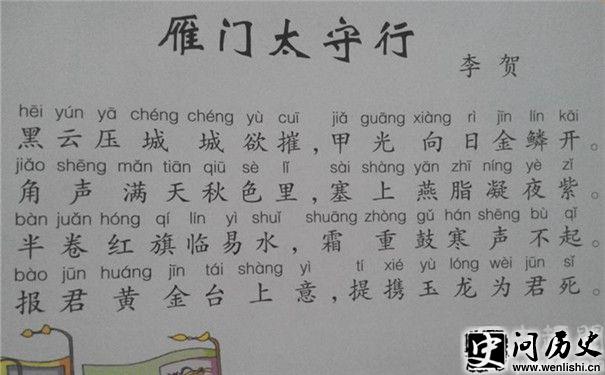 雁门太守行
李贺
hēi yún yā chéng chéng yù cuī jiǎ guāng xiàng rì jīn lín kāi
黑云压城 城欲摧，甲光向日金鳞开。
jiǎo shēng mǎn tiān qiū sè lǐ sài shàng yān zhī níng yè zǐ
角声满天秋色里，塞上燕脂凝夜紫。
bàn juǎn hóng qí lín yì shuǐ shuāng zhòng gǔ hán shēng bù qǐ
半卷红旗临易水，霜重鼓寒声不起。
bào jūn huáng jīn tái shàng yì tí xié yù lóng wèi jūn sǐ
报君黄金台上意，提携玉龙为君死。
史 问历史
www.wenlishi.cn